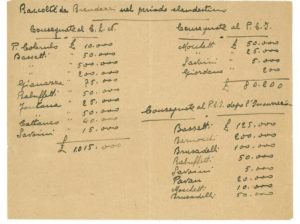 Raccolte da Brandeu nel periodo clandestino
Consegnate al C. L. N.
P. Colombo £ 10.000
Bassetti " 50.000
" " 50.000
" " 200.000
Gianazza " 75.000
Rabuffetti " 50.000
Fontana " 25.000
" " 50.000
Cattaneo " 40.000
Savorini " 15.000
£ 1015.000
Consegnate al P. C. I.
Moschetti £ 50.000
" " 25.000
Savorini " 5.000
Giordano " 200
£ 80.200
Consegnate al P.L.I. dopo l'Insurrezione
Bassetti £ 125.000
Bernocchi " 200.000
Brusadelli " 100.000
Rabuffetti 50.000
Savorini " 5.000
Pavan " 20.000
Moschetti " 10.000
Brusadelli " 50.000